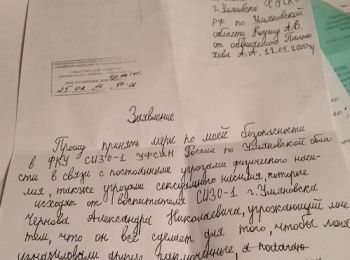 г. Ульяновска
РФ по Ульяновской
области Козину А.В.
от обвиняемого
А.А., 12.05.2000г
25.02.21
Заявление
Прошу принять меры по моей безопасности
в ФКУ СИЗО-1 УФСИН России по Ульяновской обла-
сти в связи с постоянными угрозами физического наси-
лия, также угрозами сексуального насилия, которые
исходят от воспитателя СИЗО-1 г. Ульяновска
Чернова Александра Николаевича, угрожающий мне
тем, что он всё сделает для того, чтобы меня
изнасиловали другие заключённые, я